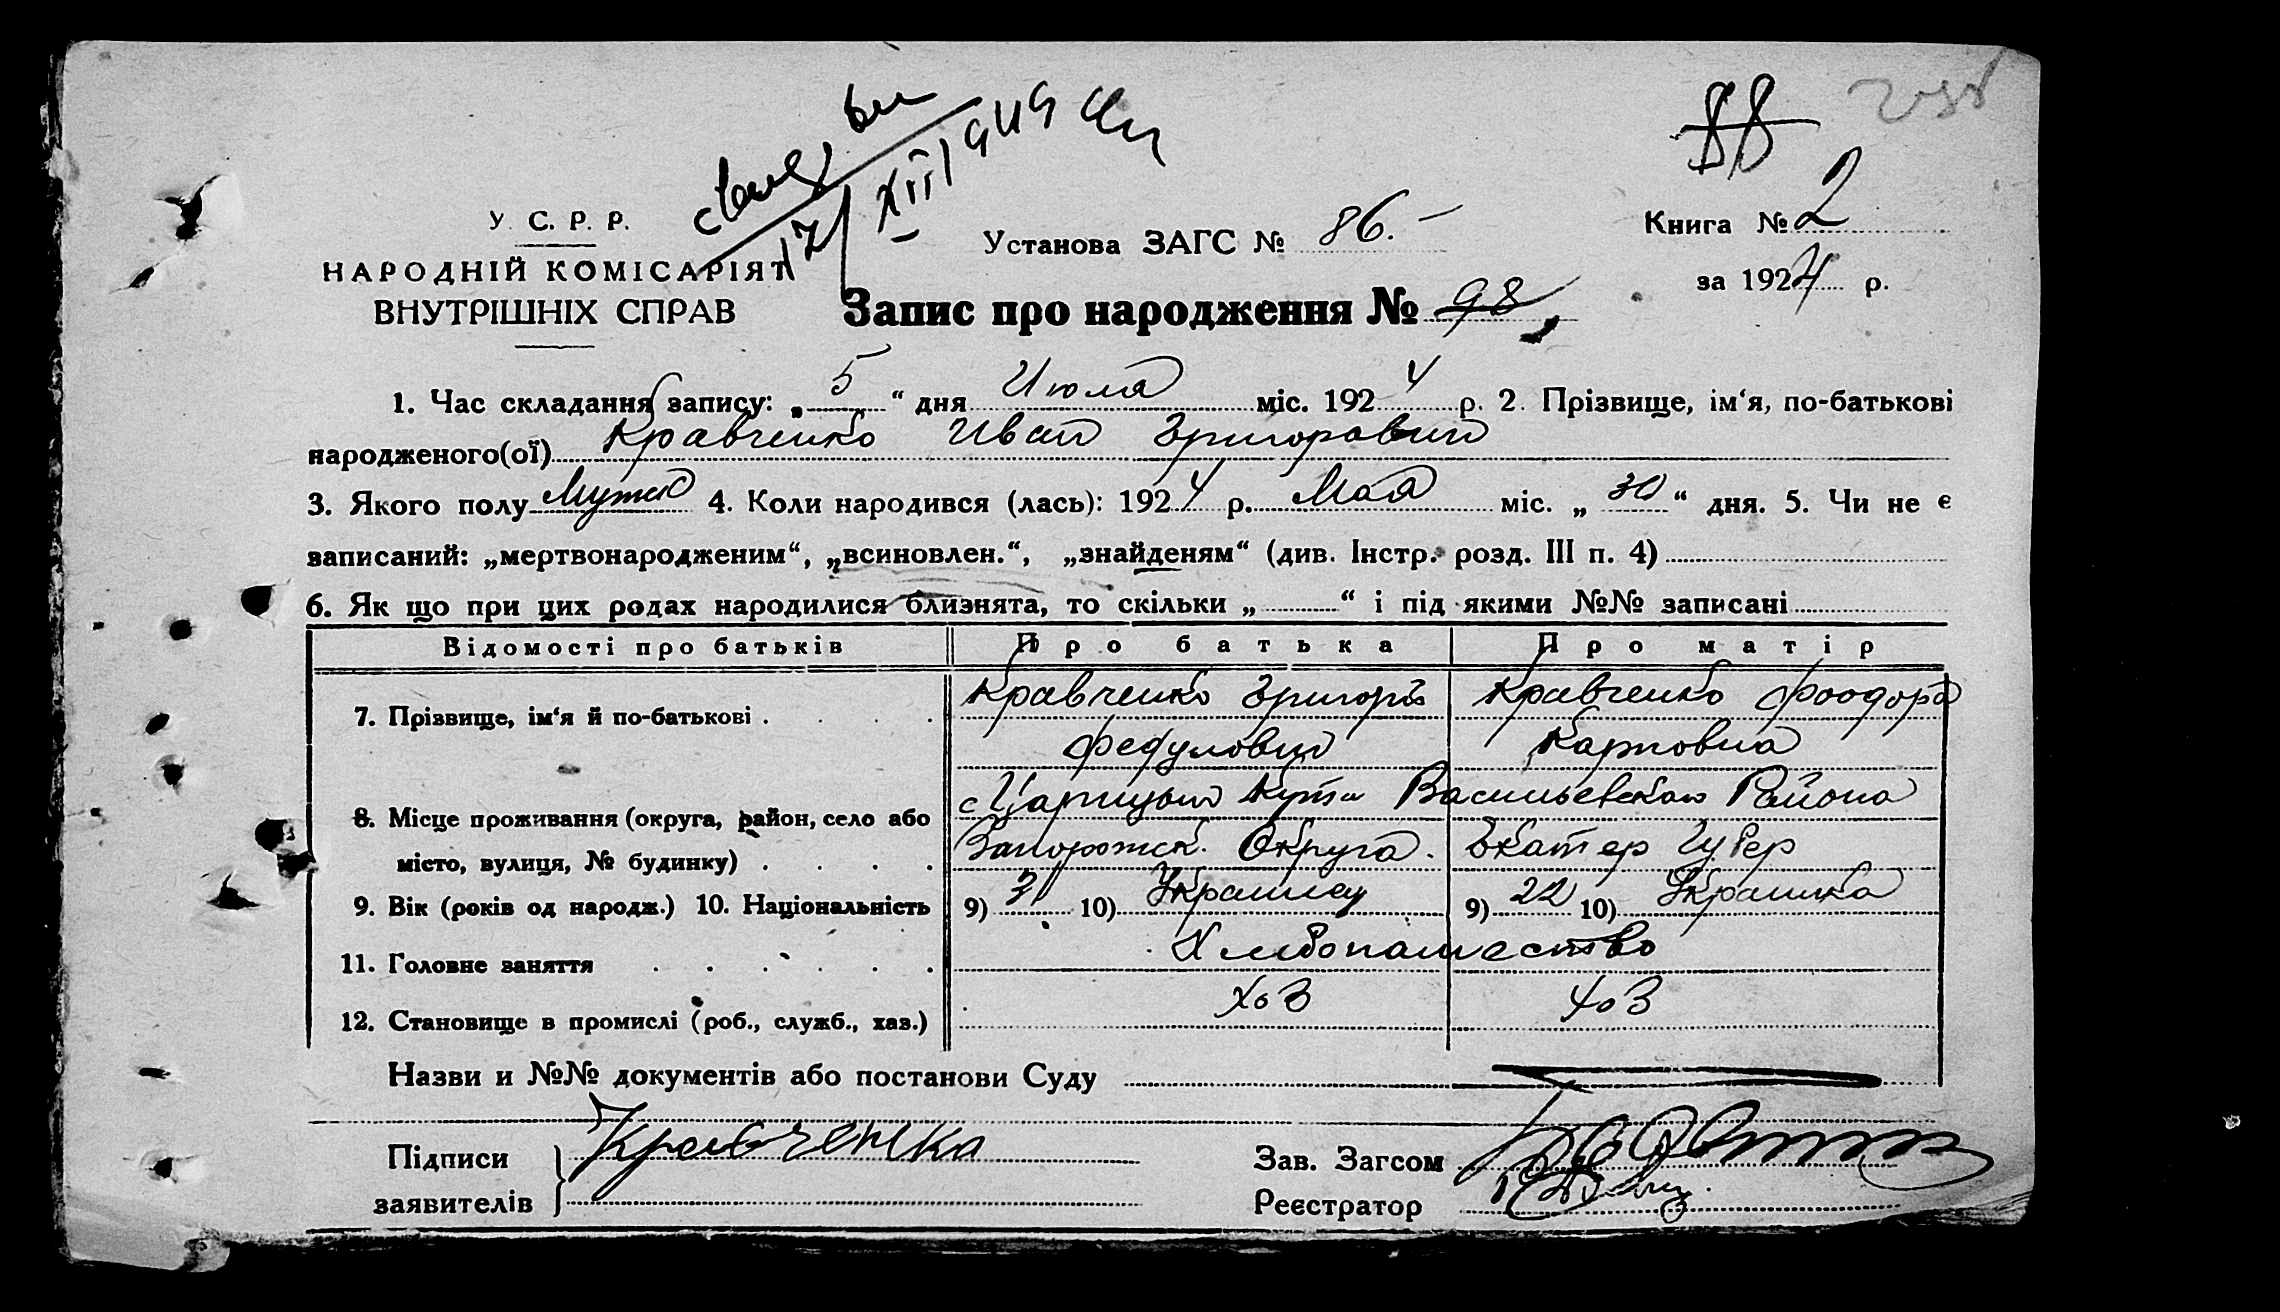 88
У. С. Р. Р.
НАРОДНІЙ КОМІСАРІЯТ
ВНУТРІШНІХ СПРАВ
17/XII 1949
Установа ЗАГС № 86.-
Книга № 2
за 1924 р.
Запис про народження № 98
1. Час складання запису: „5“ дня Июля міс. 1924 р. 2. Прізвище, ім‘я, по-батькові
народженого(ої) Кравченко Иван Григоравич
3. Якого полу Мужс 4. Коли народився (лась): 1924 р. Мая міс. „30“ дня. 5. Чи не є
записаний: „мертвонародженим“, „всиновлен.“, „знайденям“ (див. Інстр. розд. III п. 4)
6. Як що при цих родах народилися близнята, то скільки „ “ і під якими №№ записані
Відомості про батьків Про батька Про матір
7. Прізвище, ім‘я й по-батькові . . . . Кравченко Григорій Кравченко Феодора
Федулович Карповна
8. Місце проживання (округа, район, село або с Царицын Кут Васильевскаго Района
місто, вулиця, № будинку) . . . . Запорожск. Округа. Екатер Губер
9. Вік (років од народж.) 10. Національність 9) 10) Украинец 9) 22 10) Украинка
11. Головне заняття . . . . . . Хлебопашество
12. Становище в промислі (роб., служб., хаз.) хоз хоз
Назви и №№ документів або постанови Суду
Підписи Кравченка Зав. Загсом
заявителів Реєстратор